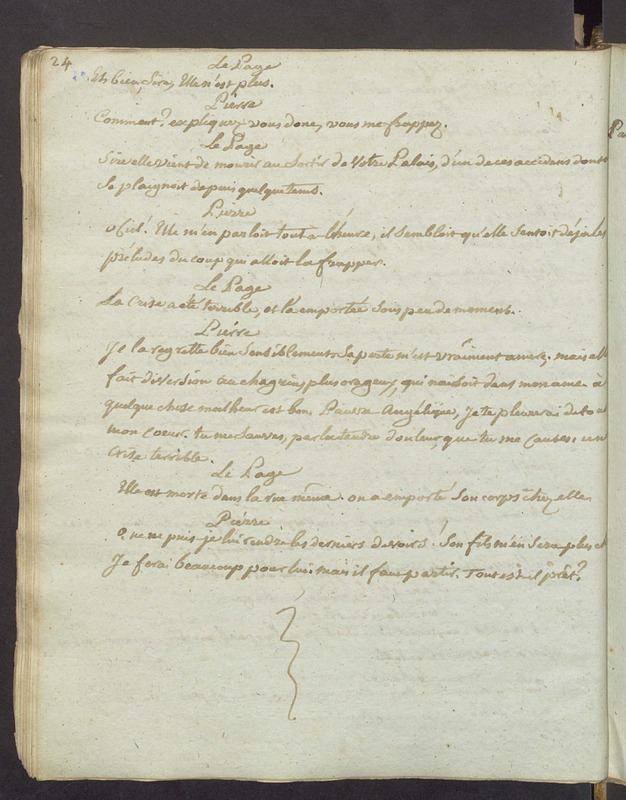 24
Le Page
Eh bien, Sire, Elle n'est plus.
Pierre
Comment? expliquez vous donc, vous me frappez.
Le Page
Sire elle vient de mourir au Sortir de Votre Palais, d'un de ces accidens dont
Se plaignoit depuis quelque tems.
Pierre
Elle m'en parloit tout-a-l'heure, il Sembloit qu'elle Sentoit déja les
préludes du coup qui alloit la frapper.
Le Page
La Crise a été terrible, et l'a emportée Sous peu de moment.
Pierre
Je la regrette bien Sensiblement. Sa perte m'est vraîment amere, mais elle
fait diversion au chagrin plus orageux, qui naissoit dans mon ame. à
quelque chose malheur est bon. Pauvre Angélique, Je te pleurerai de to
mon coeur. tu me Sauves, par la tendre douleur, que tu me Causes, un
Crise terrible.
Le Page
Elle est morte dans la rue même. on a emporté Son corps chez elle
Pierre
O que ne puis-je lui rendre les derniers devoirs! Son fils m'en Sera plus c
Je ferai beaucoup pour lui. mais il faut partir. Tout est-il prêt?
Pa